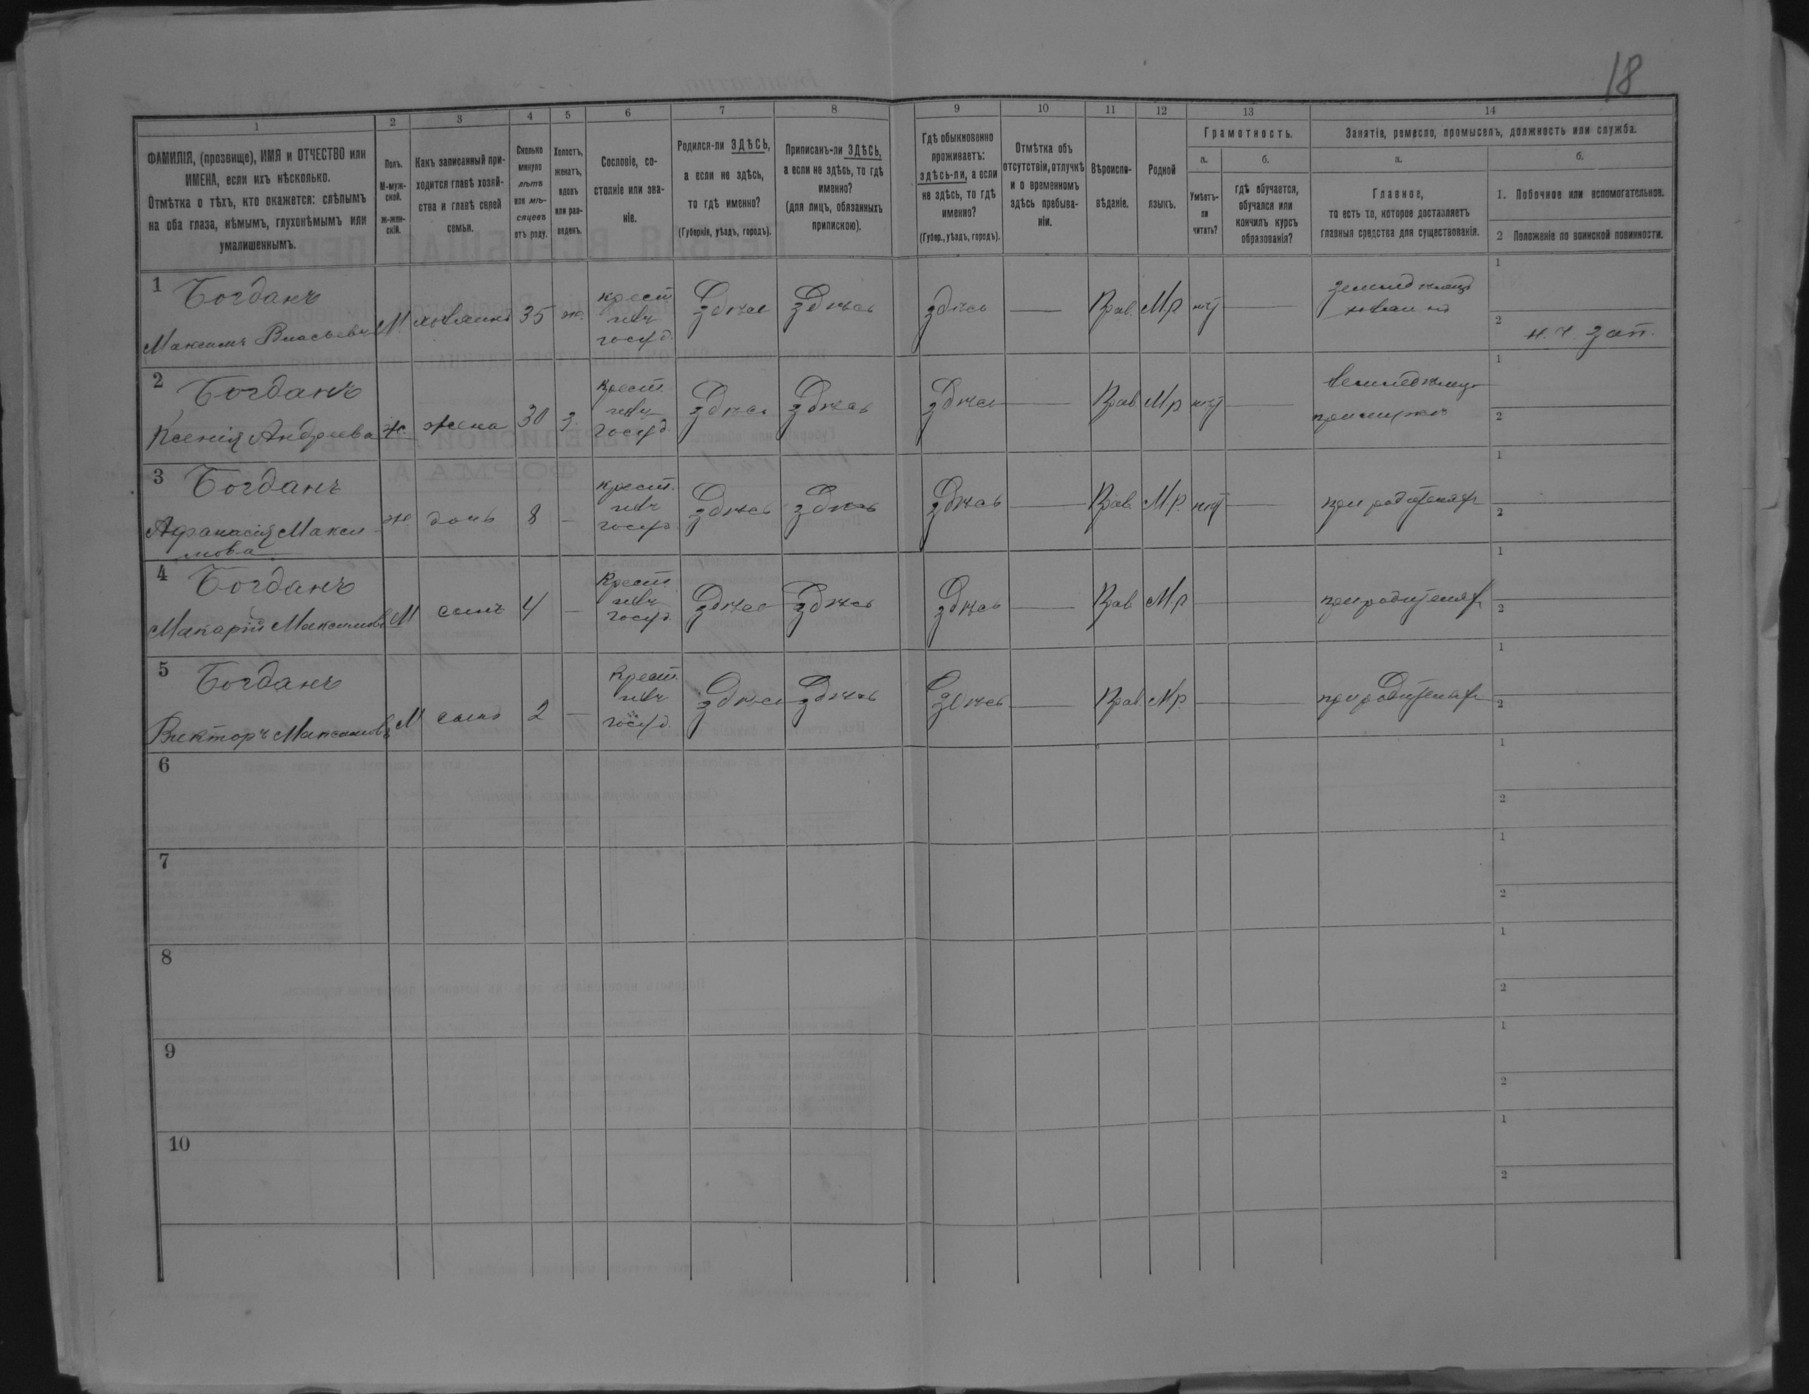 18
1 2 3 4 5 6 7 8 9 10 11 12 13 14
ФАМИЛІЯ, (прозвище), ИМЯ и ОТЧЕСТВО или
ИМЕНА, если ихъ нѣсколько.
Отмѣтка о тѣхъ, кто окажется: слѣпымъ
на оба глаза, нѣмымъ, глухонѣмымъ или
умалишеннымъ.
Полъ.
М-муж-
ской.
ж-жен-
скій.
Какъ записанный при-
ходится главѣ хозяй-
ства и главѣ своей
семьи.
Сколько
минуло
лѣтъ
или мѣ-
сяцевъ
отъ роду.
Холостъ,
женатъ,
вдовъ
или раз-
веденъ.
Сословіе, со-
стояніе или зва-
ніе.
Родился-ли ЗДѢСЬ,
а если не здѣсь,
то гдѣ именно?
(Губернія, уѣздъ, городъ).
Приписанъ-ли ЗДѢСЬ,
а если не здѣсь, то гдѣ
именно?
(для лицъ, обязанныхъ
припискою).
Гдѣ обыкновенно
проживаетъ:
здѣсь-ли, а если
не здѣсь, то гдѣ
именно?
(Губер., уѣздъ, городъ).
Отмѣтка объ
отсутствіи, отлучкѣ
и о временномъ
здѣсь пребыва-
ніи.
Вѣроиспо-
вѣданіе.
Родной
языкъ.
Грамотность.
а.
Умѣетъ-
ли
читать?
б.
гдѣ обучается,
обучался или
кончилъ курсъ
образованія?
Занятіе, ремесло, промыселъ, должность или служба.
а.
Главное,
то есть то, которое доставляетъ
главныя средства для существованія.
б.
1. Побочное или вспомогательное.
2 Положеніе по воинской повинности.
1 Богданъ
Максимъ Власьевъ М хозяинъ 35 ж. крест
госуд. Здѣсь Здѣсь здѣсь — Прав. Мр нѣт —
хозяинъ
1
2 н. ч. зап.
2 Богданъ
Ксенія Андреева ж жена 30 з. крест
госуд. Здѣсь Здѣсь Здѣсь — Прав Мр нѣт —
1
2
3 Богданъ
Афанасія Макси
мова ж дочь 8 — крест.
госуд Здѣсь Здѣсь Здѣсь — Прав Мр. нѣт — при родителях
1
2
4 Богданъ
Макарій Максимовъ М сынъ 4 — Крест
госуд Здѣсь Здѣсь Здѣсь — Прав Мр — при родителях
1
2
5 Богданъ
Викторъ Максимовъ М сынъ 2 — Крест.
госуд. Здѣсь Здѣсь Здѣсь — Прав Мр — при родителях
1
2
6
1
2
7
1
2
8
1
2
9
1
2
10
1
2